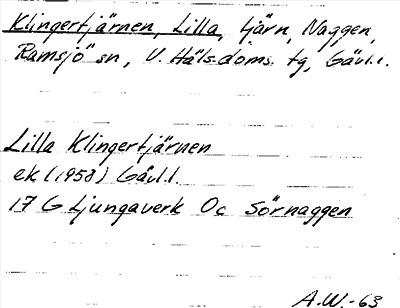 Klingertjärnen, Lilla, tjärn, Naggen,
Ramsjö sn, V. Häls. doms. tg, Gävl. l.
Lilla Klingertjärnen
ek (1958) Gävl. l.
17 G Ljungaverk 0c Sörnaggen
A.W.-63